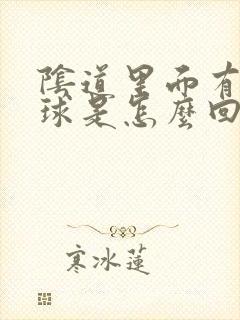 陰道里而有
球是怎麼回
寒冰蓮